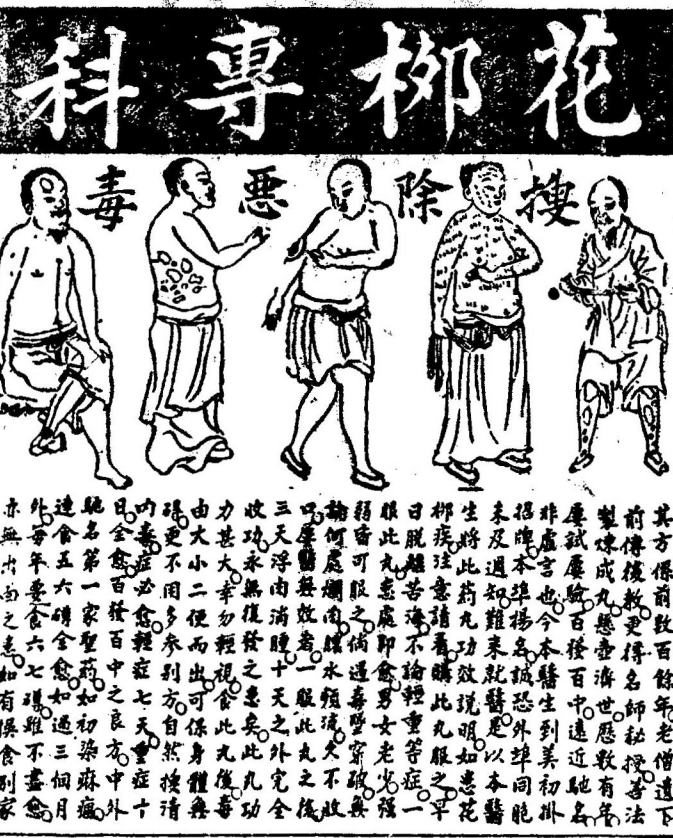 花栁專科
搜除悪毒
其方係前數百餘年老僧遺下
前傳後教更得名師秘授善法
製煉成丸懸壺濟世歷數有年
屢試屢驗百發百中遠近馳名
非虛言也今本醫生到美初掛
招牌本埠揚名誠恐外埠同胞
未及週知難來就醫是以本醫
生將此葯丸功效説明如患花
栁疾注意請看購此丸服之早
日脱離苦海不論輕重等症一
服此丸患處即愈男女老少强
弱皆可服之倘遇毒穿破無
論何處爛肉膿水頻流久不收
口屢醫無效者一服此丸之後
三天浮肉消腫十天之外完全
收功永無復發之患矣此丸功
力甚大幸勿輕視食此丸後毒
由大小二便而出可保身體無
碍更不用多参别方自然搜清
内毒症必愈輕症七天重症十
日全愈百發百中之良方中外
馳名第一家聖葯如初染麻瘋
連食五六全愈如過三個月
外每年要食六七雖不盡愈
亦無出面之患如有食别家